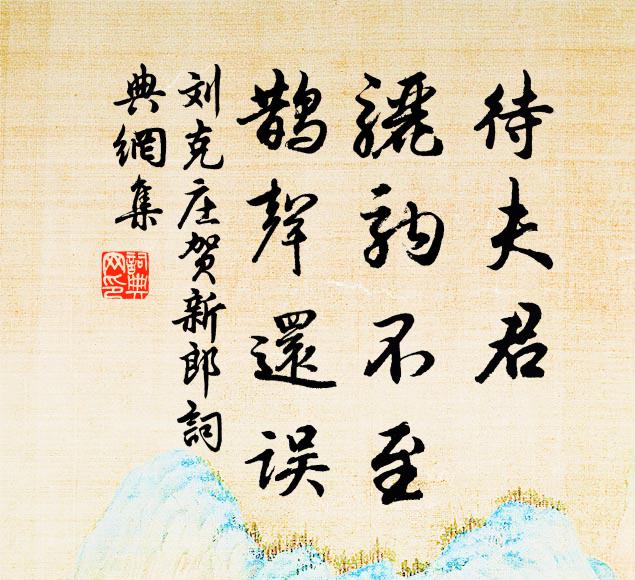 待夫君
骊驹不至
鹊聲還误
刘克庄贺新郎詞
典網集
詞典
网印